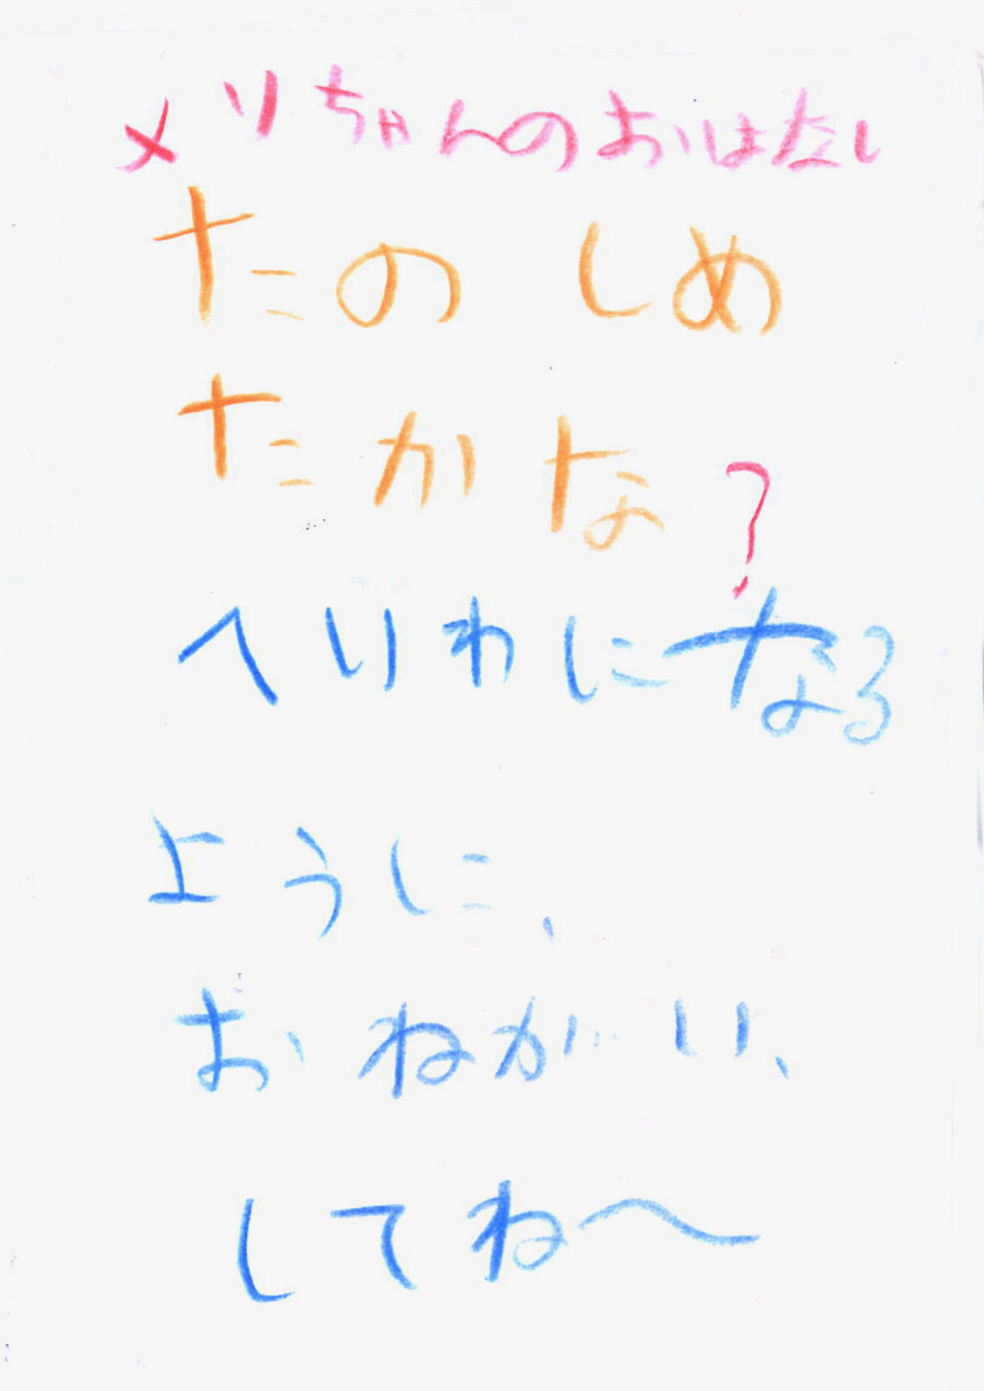 メリちゃんのおはなし
たのしめ
たかな?
へいわになる
ように、
おねがい、
してね〜